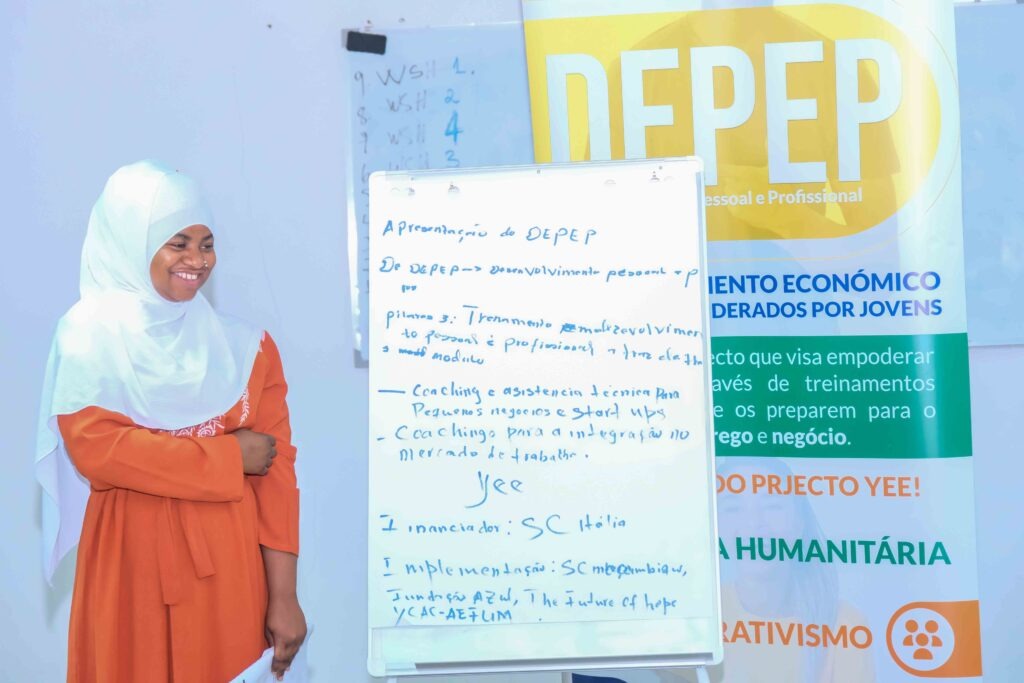 9. WSH 1.
8. WSH 2
WSH 4
WSH 3
DEPEP
essoal e Profissional
MENTO ECONÓMICO
DERADOS POR JOVENS
ecto que visa empoderar
avés de treinamentos
e os preparem para o
rego e negócio.
DO PRJECTO YEE!
A HUMANITÁRIA
RATIVISMO
Apresentação do DEPEP
De DEPEP → Desenvolvimento pessoal
pilares 3: Trenamento
to pessoal e profissional
modulo
— Coaching e asistencia tecnica para
Pequenos negocios e start ups
- Coachings para a integração no
mercado de trabalho.
Yee
Financiador: SC Itália
Implementação: SC moçambique,
Fundação Azul, The Future of hope
YCAC-AEFUM.